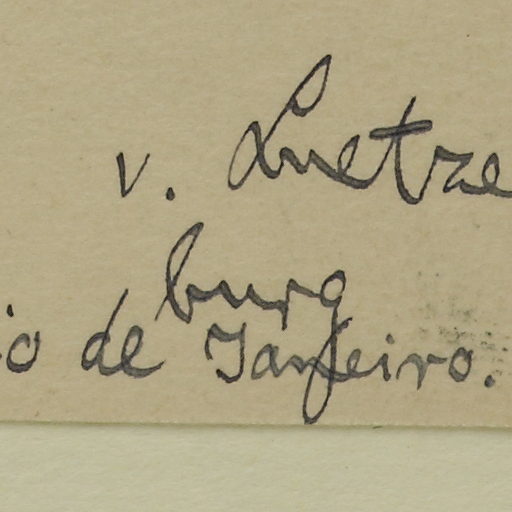 v. Luetze
burg
io de Janeiro.